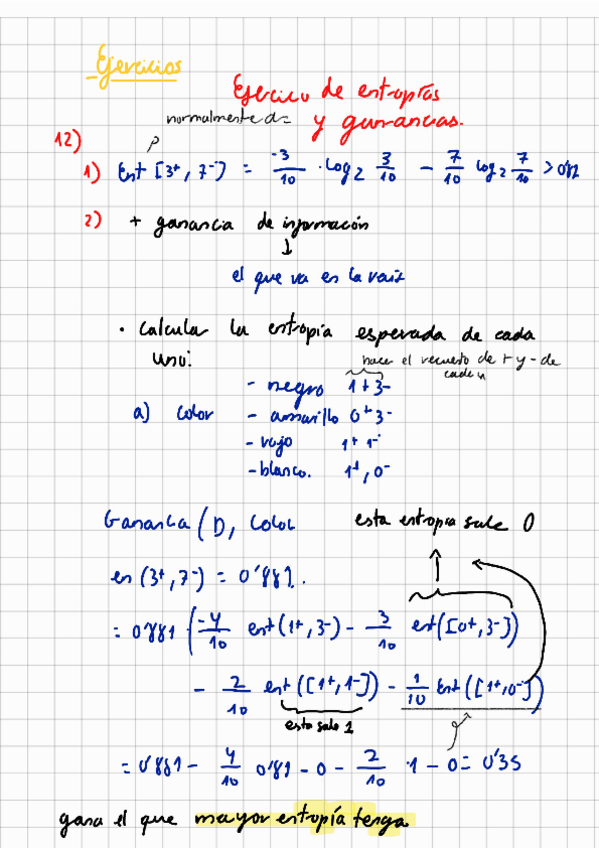 Ejercicios
Ejercicio de entropías
normalmente d=
y ganancias.
12)
1) Ent [3+, 7-) = -3/10 · log2 3/10 - 7/10 log2 7/10 >
2) + ganancia de información
↓
el que va en la raiz
· Calcular la entropía esperada de cada
uno:
hace el recuento de + y - de
cada
- negro 1+3-
a) color - amarillo 0+3-
- rojo 1+ 1-
- blanco. 1+, 0-
Ganancia (D, Color
esta entropia sale 0
en (3+, 7-) = 0'881.
= 0'881 (-4/10 ent (1+, 3-) - 3/10 ent([0+, 3-])
- 2/10 ent ([1+, 1-]) - 1/10 Ent ([1+, 0-])
esto sale 1
= 0'881 - 4/10 0'81 - 0 - 2/10 · 1 - 0 = 0'35
gana el que mayor entropía tenga